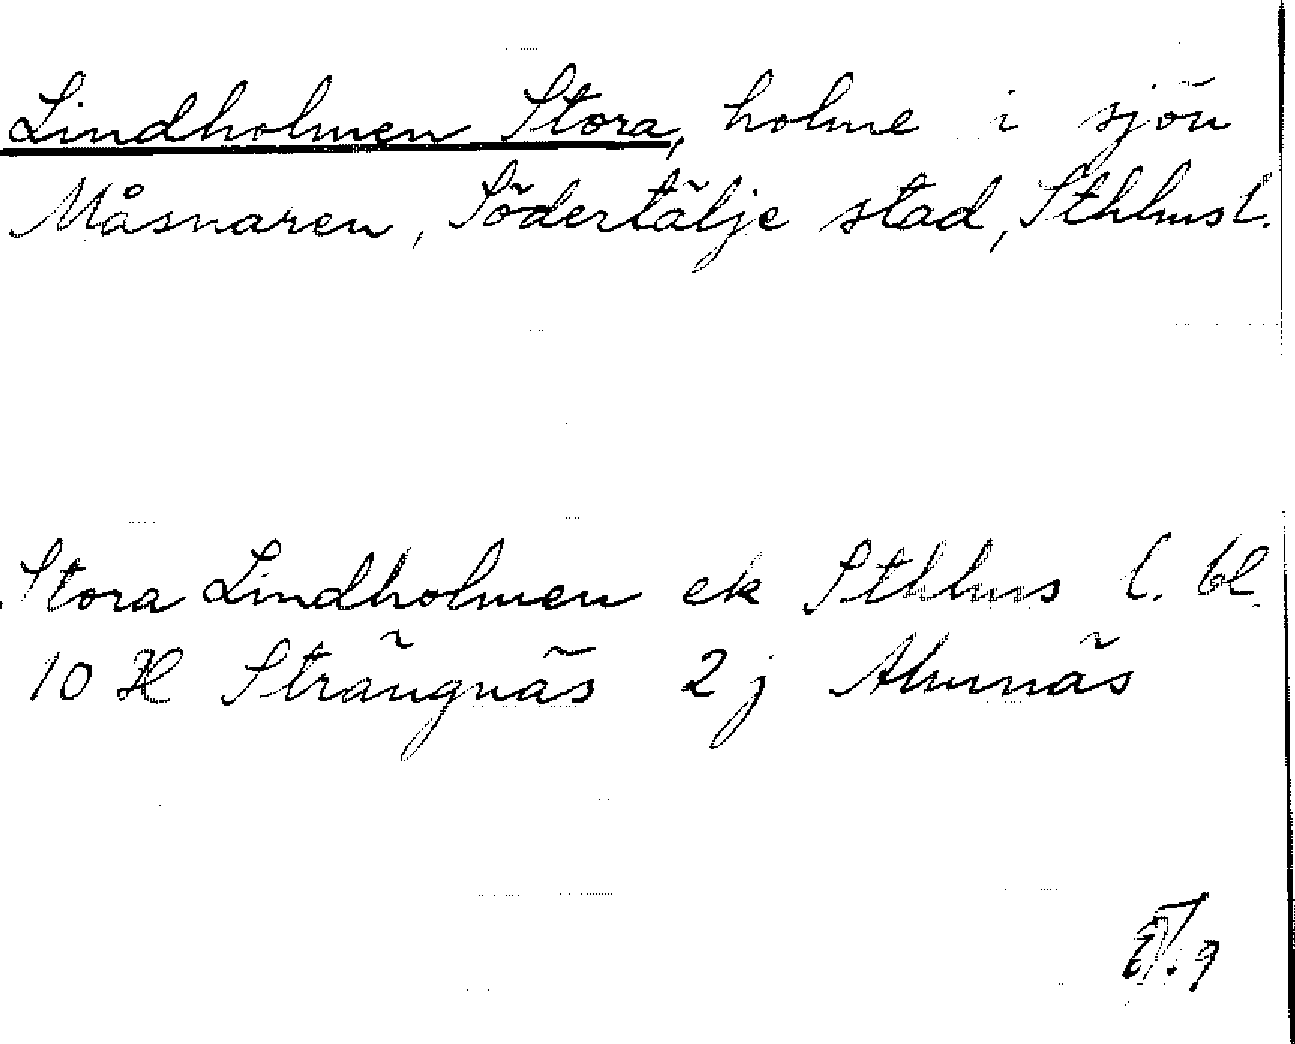 Lindholmen Stora, holme i sjön
Måsnaren, Södertälje stad, Sthlms l.
Stora Lindholmen ek Sthlms l. bl.
10 H Strängnäs 2 j Almnäs